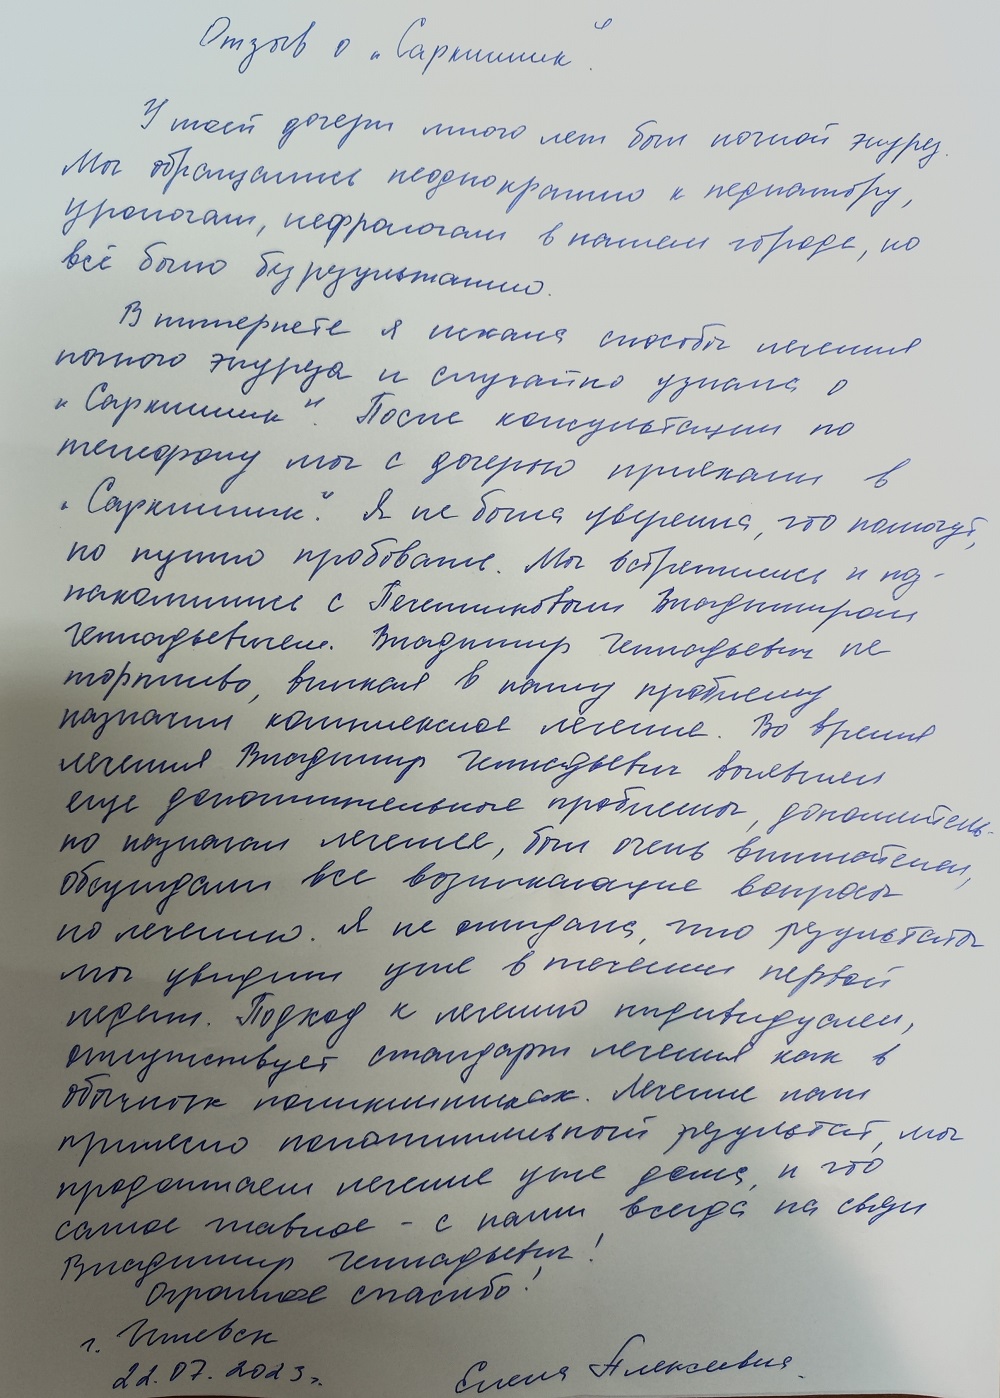 Отзыв о „Саркиник".
У моей дочери много лет был ночной энурез.
Мы обращались неоднократно к педиатору,
урологам, нефрологам в нашем городе, но
всё было безрезультатно.
В интернете я искала способы лечения
ночного энуреза и случайно узнала о
„Саркиник". После консультации по
телефону мы с дочерью приехали в
„Саркиник". Я не была уверенна, что помогут,
но нужно пробовать. Мы встретились и поз-
накомились с Владимиром
Геннадьевичем. Владимир Геннадьевич не
торопливо, вникая в нашу проблему
назначил комплексное лечение. Во время
лечения Владимир Геннадьевич выявил
еще дополнительные проблемы, дополнитель-
но назначал лечение, был очень внимателен,
обсуждали все возникающие вопросы
по лечению. Я не ожидала, что результаты
мы увидим уже в течении первой
недели. Подход к лечению индивидуален,
отсутствует стандарт лечения как в
обычных поликлиниках. Лечение нам
принесло положительный результат, мы
продолжаем лечение уже дома, и что
самое главное - с нами всегда на связи
Владимир Геннадьевич!
Огромное спасибо!
г. Ижевск
22.07.2023г.
Елена Алексеевна.